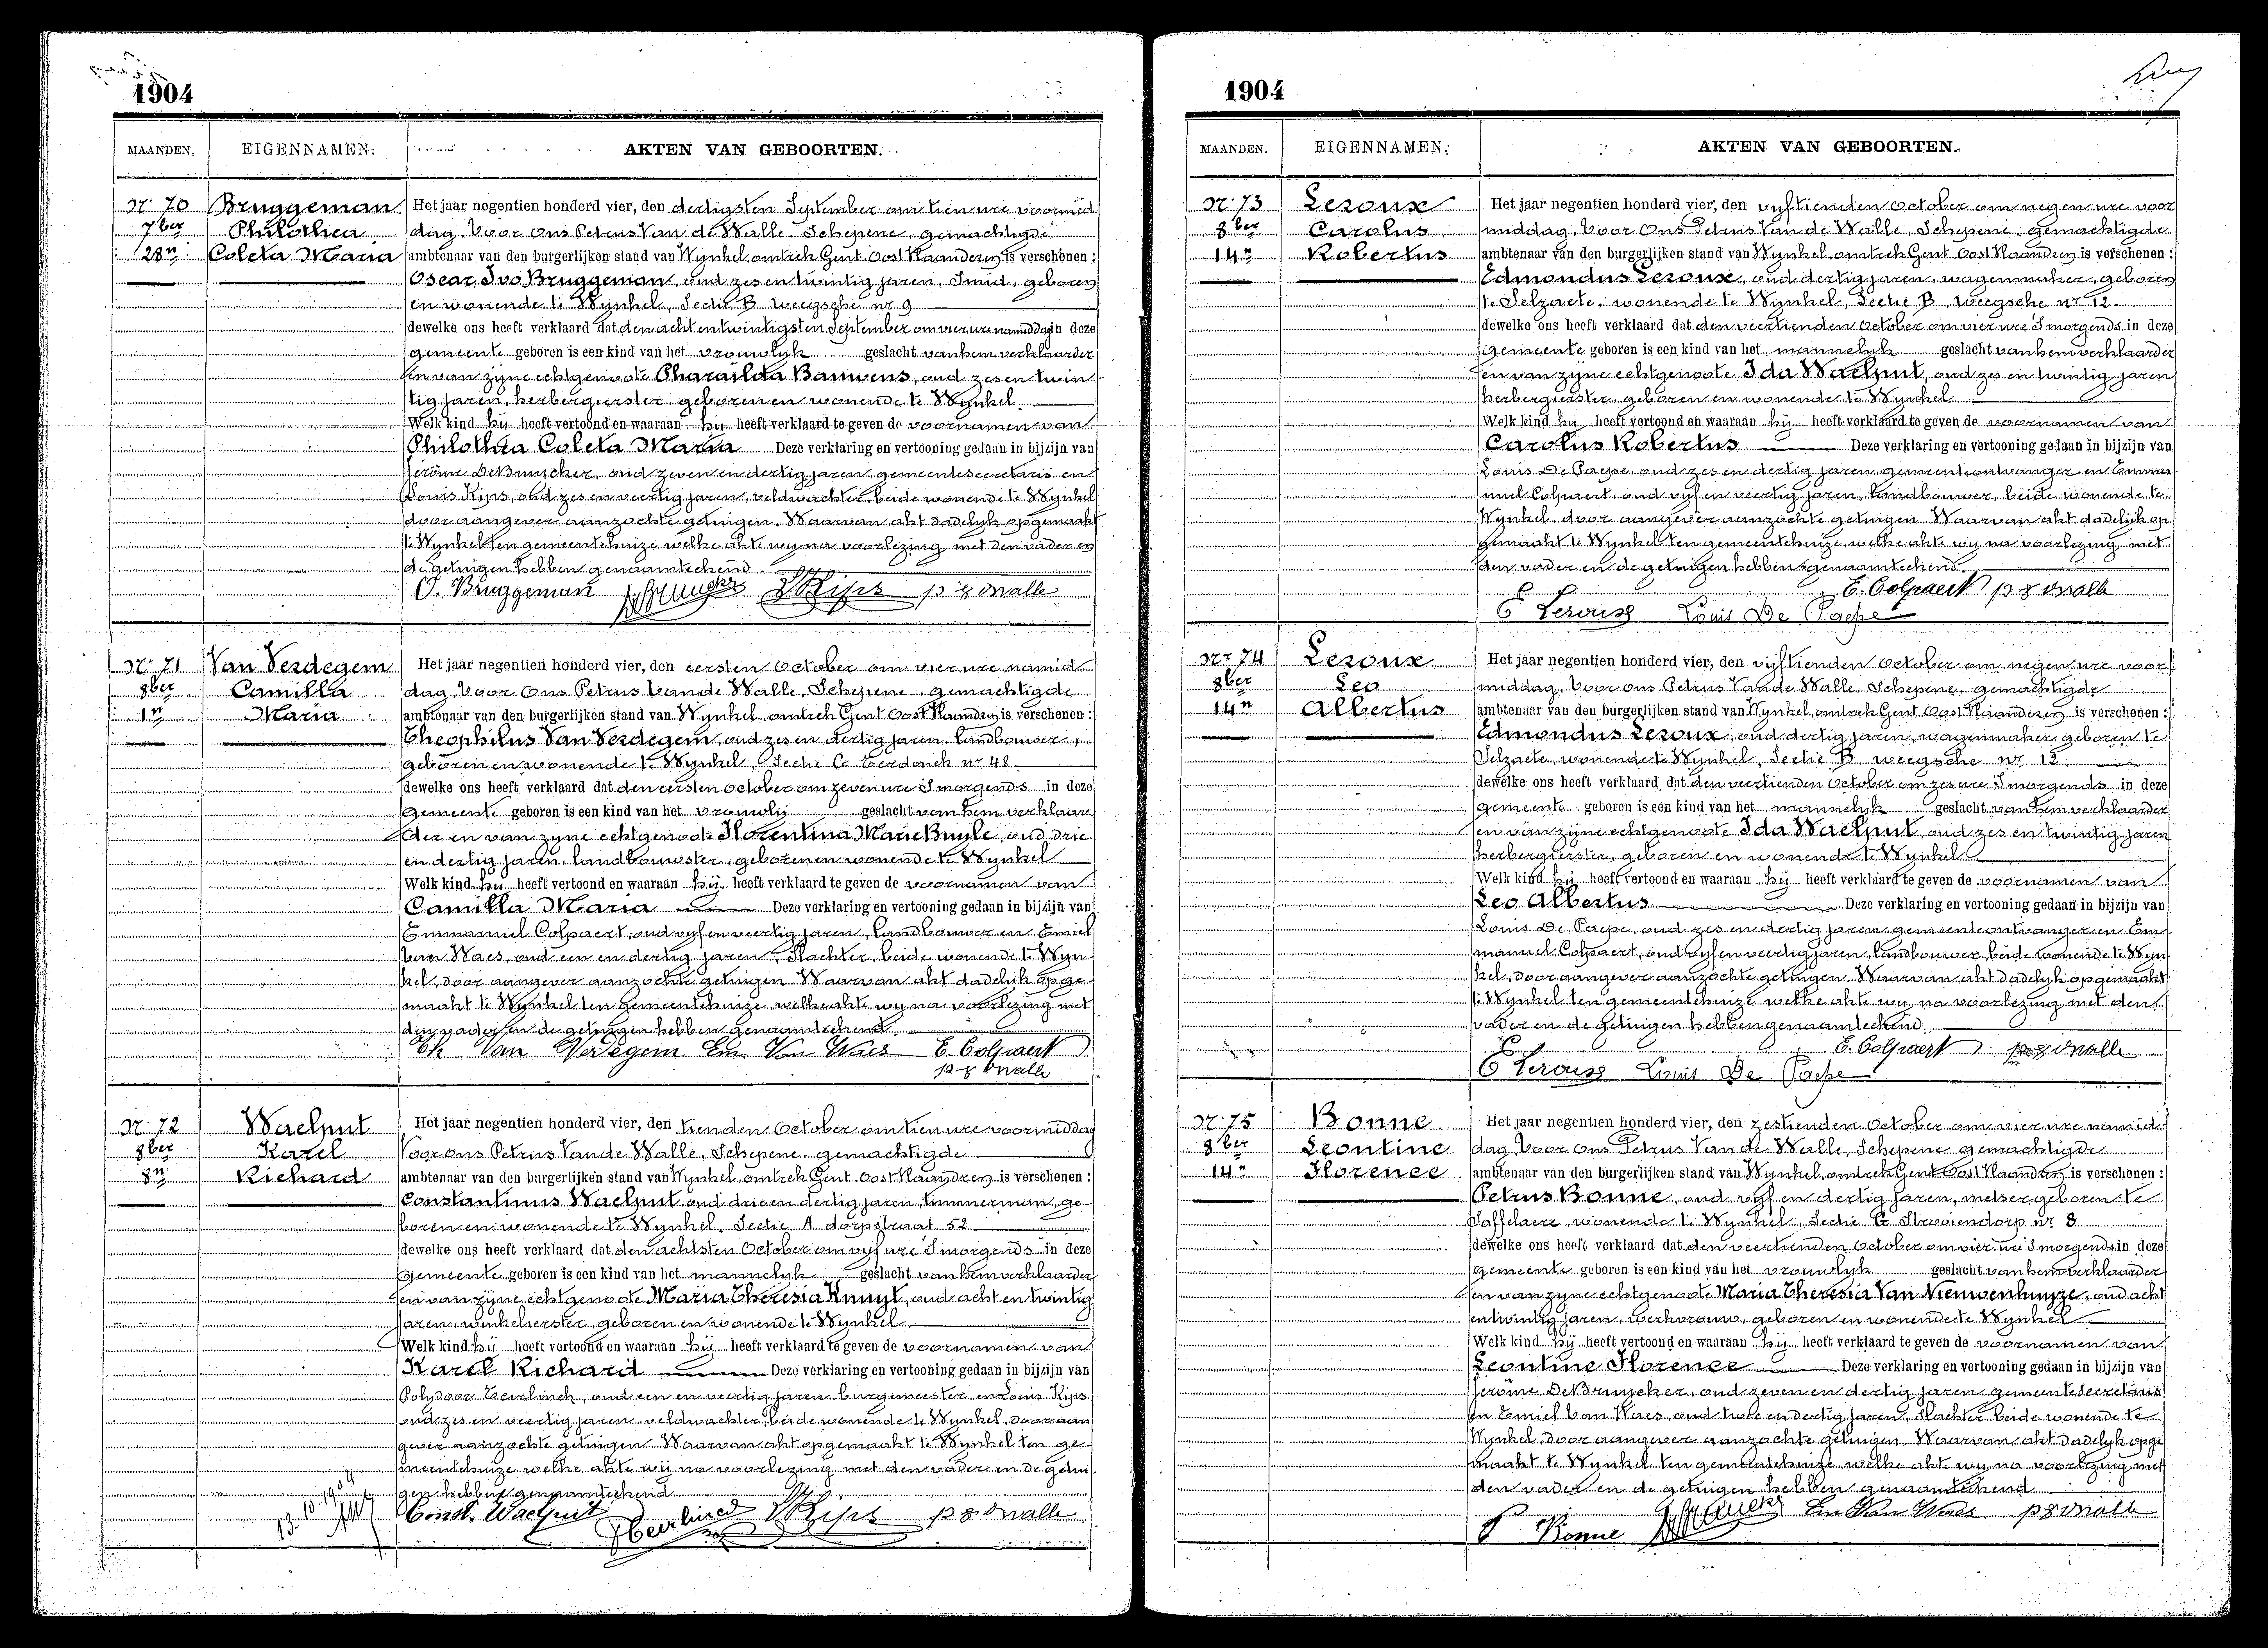 1904
MAANDEN. EIGENNAMEN. AKTEN VAN GEBOORTEN.
Nr 70 Bruggeman
7ber Philothea
28n Coleta Maria
Het jaar negentien honderd vier, den dertigsten September om tien ure voormid
dag Voor Ons Petrus Van de Walle Schepene, gemachtigde
ambtenaar van den burgerlijken stand van Wynkel, omtrek Gent Oost Vlaanderen is verschenen:
Oscar Ivo Bruggeman, oud zes en twintig jaren, Smid, geboren
en wonende te Wynkel, Sectie B weegsche nr 9
dewelke ons heeft verklaard dat den acht en twintigsten September om vier ure namiddag in deze
gemeente geboren is een kind van het vrouwlyk geslacht van hem verklaarder
en van zyne echtgenoote Pharaïlda Bauwens, oud zes en twin
tig jaren, herbergierster, geboren en wonende te Wynkel.
Welk kind hij heeft vertoond en waaraan hij heeft verklaard te geven de voornamen van
Philothea Coleta Maria Deze verklaring en vertooning gedaan in bijzijn van
Jerôme DeBruycker, oud zeven en dertig jaren gemeentesecretaris en
Louis Kips, oud zes en veertig jaren, veldwachter, beide wonende te Wynkel
door aangever aanzochte getuigen. Waarvan akt dadelyk opgemaakt
te Wynkel ten gemeentehuize welke akte wy na voorlezing met den vader en
de getuigen hebben genaamteekend
O. Bruggeman L Kips p v d Walle
Nr 71 Van Verdegem
8ber Camilla
1n Maria
Het jaar negentien honderd vier, den eersten October om vier ure namid
dag Voor Ons Petrus Van de Walle, Schepene gemachtigde
ambtenaar van den burgerlijken stand van Wynkel, omtrek Gent Oost Vlaanderen is verschenen:
Theophilus Van Verdegem, oud zes en dertig jaren Landbouwer,
geboren en wonende te Wynkel, Sectie C Terdonck nr 48
dewelke ons heeft verklaard dat den eersten October om zeven ure S'morgends in deze
gemeente geboren is een kind van het vrouwlij geslacht van hem verklaar
der en van zyne echtgenoote Florentina Marie Buyle, oud drie
en dertig jaren, landbouwster, geboren en wonende te Wynkel
Welk kind hij heeft vertoond en waaraan hij heeft verklaard te geven de voornamen van
Camilla Maria Deze verklaring en vertooning gedaan in bijzijn van
Emmanuel Colpaert, oud vyf en veertig jaren, Landbouwer en Emiel
Van Waes, oud een en dertig jaren, Slachter, beide wonende te Wyn
kel, door aangever aanzochte getuigen Waarvan akt dadelyk opge
maakt te Wynkel ten gemeentehuize, welke akte wy na voorlezing met
den vader en de getuigen hebben genaamteekend
Th Van Verdegem Em. Van Waes E. Colpaert
p v d Walle
Nr 72 Waelput
8ber Karel
8n Richard
Het jaar negentien honderd vier, den tienden October om tien ure voormiddag
Voor ons Petrus Van de Walle, Schepene, gemachtigde
ambtenaar van den burgerlijken stand van Wynkel, omtrek Gent Oost Vlaanderen is verschenen:
Constantinus Waelput oud drie en dertig jaren, timmerman, ge
boren en wonende te Wynkel, Sectie A dorpstraat 52
dewelke ons heeft verklaard dat den achtsten October om vyf ure S'morgends in deze
gemeente geboren is een kind van het mannelyk geslacht van hem verklaarder
en van zyne echtgenoote Maria Theresia Kuuyt, oud acht en twintig
jaren, winkelierster, geboren en wonende te Wynkel
Welk kind hij heeft vertoond en waaraan hij heeft verklaard te geven de voornamen van
Karel Richard Deze verklaring en vertooning gedaan in bijzijn van
Polydoor Teirlinck, oud een en veertig jaren burgemeester en Louis Kips
oud zes en veertig jaren veldwachter, beide wonende te Wynkel, door aan
gever aanzochte getuigen Waarvan akt opgemaakt te Wynkel ten ge
meentehuize welke akte wij na voorlezing met den vader en de getui
gen hebben genaamteekend
13.10.1904 Const. Waelput L Kips p v d Walle
1904
MAANDEN. EIGENNAMEN. AKTEN VAN GEBOORTEN.
Nr 73 Leroux
8ber Carolus
14n Robertus
Het jaar negentien honderd vier, den vyftienden October om negen ure voor
middag, Voor ons Petrus Van de Walle, Schepene, gemachtigde
ambtenaar van den burgerlijken stand van Wynkel, omtrek Gent Oost Vlaanderen is verschenen:
Edmondus Leroux, oud dertig jaren, wagenmaker, geboren
te Selzaete, wonende te Wynkel, Sectie B, weegsche nr 12.
dewelke ons heeft verklaard dat den veertienden October om vier ure S'morgends in deze
gemeente geboren is een kind van het mannelyk geslacht van hem verklaarder
en van zyne echtgenoote Ida Waelput, oud zes en twintig jaren
herbergierster, geboren en wonende te Wynkel
Welk kind hy heeft vertoond en waaraan hij heeft verklaard te geven de voornamen van
Carolus Robertus Deze verklaring en vertooning gedaan in bijzijn van
Louis De Paepe, oud zes en dertig jaren, gemeenteontvanger en Emma
nuel Colpaert, oud vyf en veertig jaren, Landbouwer, beide wonende te
Wynkel, door aangever aanzochte getuigen Waarvan akt dadelijk op
gemaakt te Wynkel ten gemeentehuize, welke akte wy na voorlezing met
den vader en de getuigen hebben genaamteekend
E. Colpaert p v d Walle
E Leroux Louis De Paepe
Nr 74 Leroux
8ber Leo
14n Albertus
Het jaar negentien honderd vier, den vyftienden October om negen ure voor
middag, Voor ons Petrus Van de Walle, Schepene, gemachtigde
ambtenaar van den burgerlijken stand van Wynkel, omtrek Gent Oost Vlaanderen is verschenen:
Edmondus Leroux, oud dertig jaren, wagenmaker geboren te
Selzaete, wonende te Wynkel, Sectie B weegsche nr 12
dewelke ons heeft verklaard dat den veertienden October om zes ure S'morgends in deze
gemeente geboren is een kind van het mannelyk geslacht van hem verklaarder
en van zyne echtgenoote Ida Waelput, oud zes en twintig jaren
herbergierster, geboren en wonende te Wynkel
Welk kind hij heeft vertoond en waaraan hij heeft verklaard te geven de voornamen van
Leo Albertus Deze verklaring en vertooning gedaan in bijzijn van
Louis De Paepe, oud zes en dertig jaren gemeenteontvanger en Em
manuel Colpaert, oud vyf en veertig jaren, Landbouwer, beide wonende te Wyn
kel, door aangever aanzochte getuigen. Waarvan akt dadelyk opgemaakt
te Wynkel ten gemeentehuize welke akte wy na voorlezing met den
vader en de getuigen hebben genaamteekend
E. Colpaert p v d Walle
E Leroux Louis De Paepe
Nr 75 Bonne
8ber Leontine
14n Florence
Het jaar negentien honderd vier, den zestienden October om vier ure namid
dag Voor Ons Petrus Van de Walle, Schepene gemachtigde
ambtenaar van den burgerlijken stand van Wynkel, omtrek Gent Oost Vlaanderen is verschenen:
Petrus Bonne, oud vyf en dertig jaren, metser geboren te
Saffelaere, wonende te Wynkel, Sectie C Stroiendorp nr 8
dewelke ons heeft verklaard dat den veertienden October om vier ure S'morgends in deze
gemeente geboren is een kind van het vrouwlyk geslacht van hem verklaarder
en van zyne echtgenoote Maria Theresia Van Nieuwenhuyze, oud acht
en twintig jaren, werkvrouw, geboren en wonende te Wynkel
Welk kind hij heeft vertoond en waaraan hij heeft verklaard te geven de voornamen van
Leontine Florence Deze verklaring en vertooning gedaan in bijzijn van
Jerôme DeBruycker, oud zeven en dertig jaren gemeentesecretaris
en Emiel Van Waes, oud twee en dertig jaren, Slachter beide wonende te
Wynkel, door aangever aanzochte getuigen. Waarvan akt dadelyk opge
maakt te Wynkel ten gemeentehuize welke akte wy na voorlezing met
den vader en de getuigen hebben genaamteekend
P Bonne Em Van Waes p v d Walle